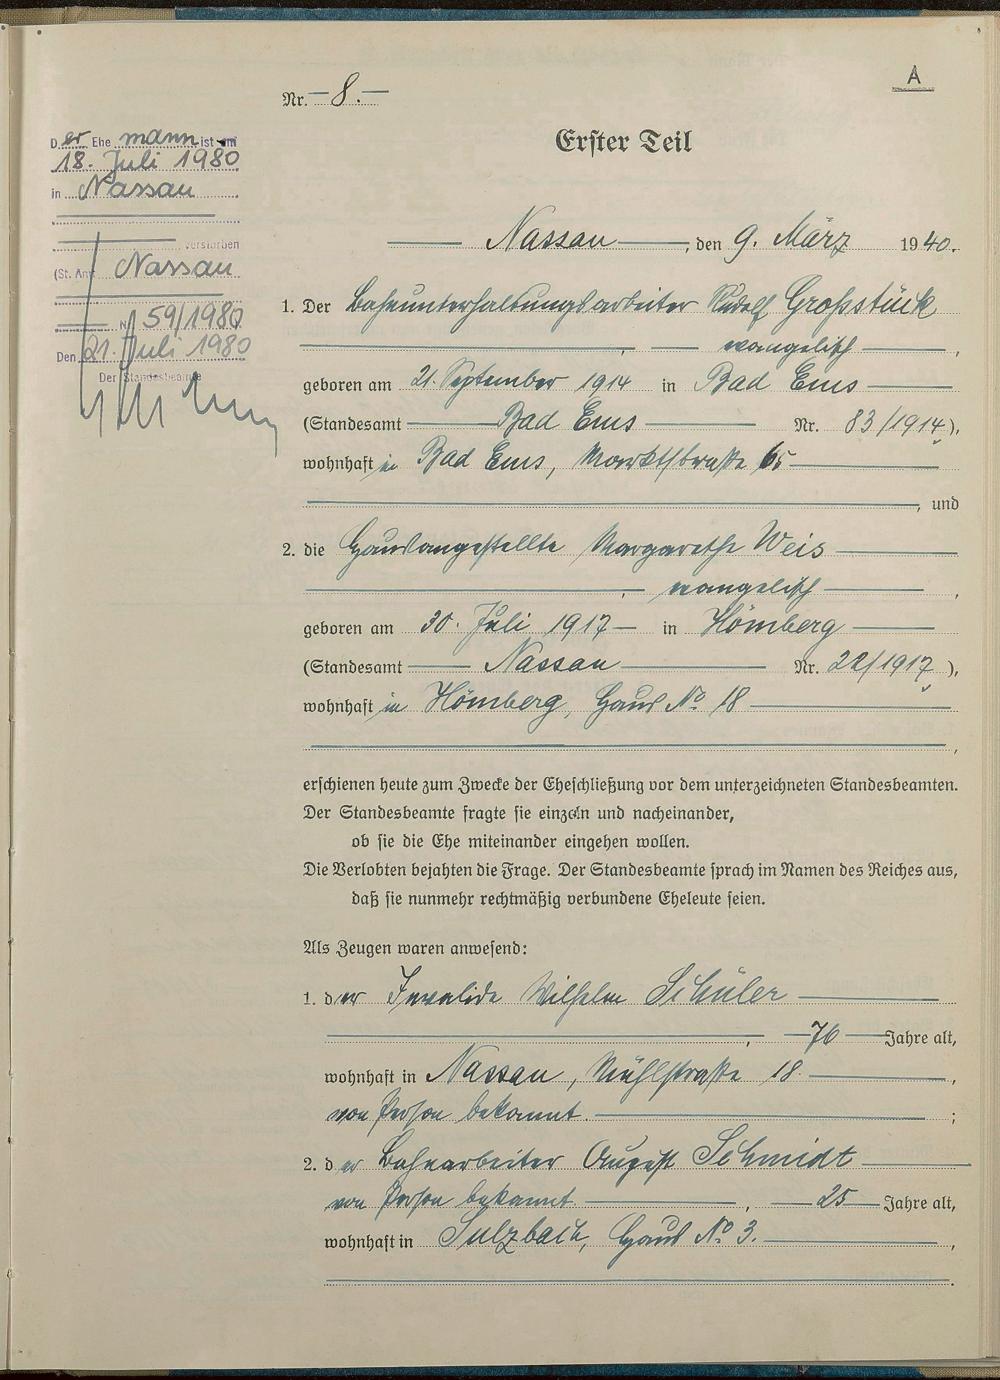 A
Nr. 8.
Erster Teil
Der Ehemann ist am
18. Juli 1980
in Nassau
verstorben
(St. Amt Nassau
Nr. 59/1980
Den 21. Juli 1980
Der Standesbeamte
Nassau, den 9. März 1940.
1. Der Bahnunterhaltungsarbeiter Rudolf Großstück
, evangelisch,
geboren am 21. September 1914 in Bad Ems
(Standesamt Bad Ems Nr. 83/1914),
wohnhaft in Bad Ems, Marktstraße 65
, und
2. die Hausangestellte Margarethe Weis
, evangelisch,
geboren am 30. Juli 1917 in Hömberg
(Standesamt Nassau Nr. 22/1917),
wohnhaft in Hömberg, Haus No 18
,
erschienen heute zum Zwecke der Eheschließung vor dem unterzeichneten Standesbeamten.
Der Standesbeamte fragte sie einzeln und nacheinander,
ob sie die Ehe miteinander eingehen wollen.
Die Verlobten bejahten die Frage. Der Standesbeamte sprach im Namen des Reiches aus,
daß sie nunmehr rechtmäßig verbundene Eheleute seien.
Als Zeugen waren anwesend:
1. der Invalide Wilhelm Schüler
, 76 Jahre alt,
wohnhaft in Nassau, Mühlstraße 18.,
von Person bekannt. ;
2. der Bahnarbeiter August Schmidt
von Person bekannt, 25 Jahre alt,
wohnhaft in Sulzbach, Haus No 3.,
.